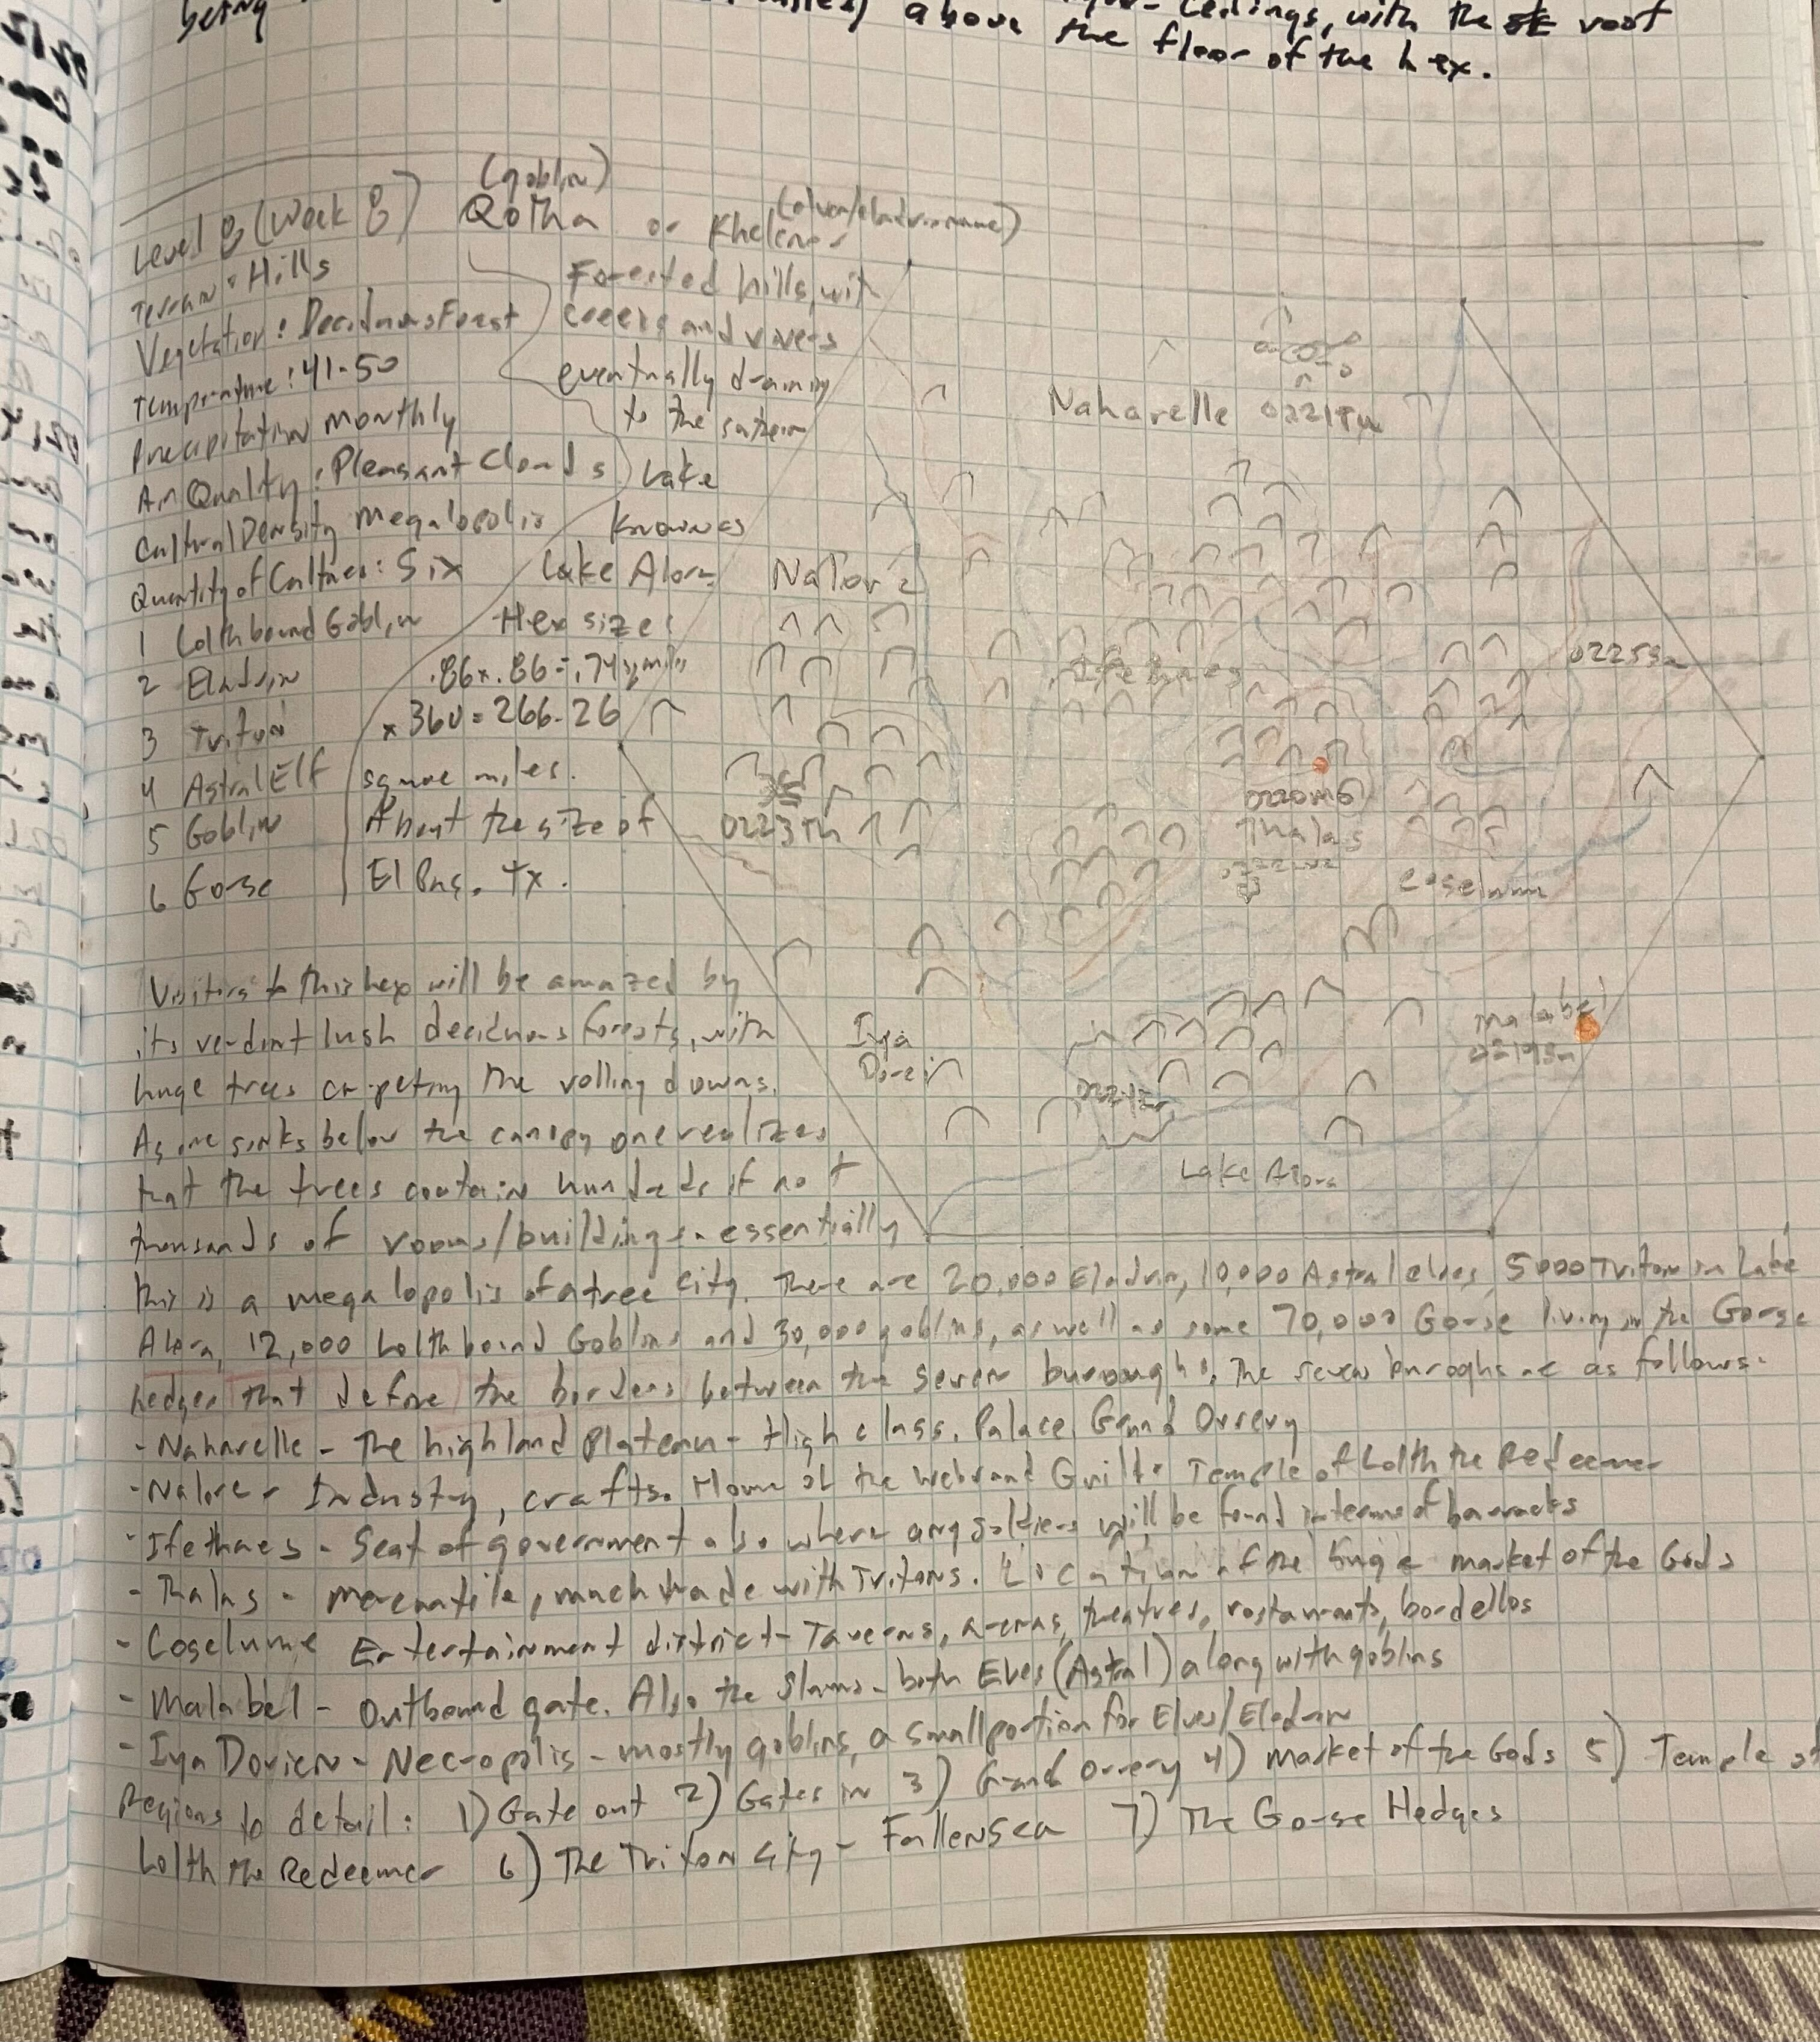 being
above
ceilings, with the
roof
the floor of the hex.
Level 8 (Week 8)
(goblin)
Qotha or Khelenor
Terrain: Hills
Vegetation: Deciduous Forest
Temperature: 41-50
Precipitation Monthly
Air Quality: Pleasant Clouds
Cultural Density Megalopolis
Quantity of Cultures: Six
1 Lolthbound Goblin
2 Eladrin
3 Triton
4 Astral Elf
5 Goblin
6 Gorse
Forested hills, with
creeks and rivers
eventually draining
to the southern
Lake
known as
Lake Alora
Hex size:
.86 x .86 = .74 sq miles
x 360 = 266.26
square miles.
About the size of
El Paso, Tx.
Naharelle
Nalore
Ifethaes
0223Th
0220MG
Thalas
Coselume
Iya
Dorien
Malabel
Lake Alora
Visitors to this hex will be amazed by
its verdant lush deciduous forests, with
huge trees carpeting the rolling downs.
As one sinks below the canopy one realizes
that the trees contain hundreds if not
thousands of rooms/buildings - essentially
this is a megalopolis of a tree city. There are 20,000 Eladrin, 10,000 Astral elves, 5000 Triton in Lake
Alora, 12,000 Lolthbound Goblins and 30,000 goblins, as well as some 70,000 Gorse living in the Gorse
hedges that define the borders between the seven buroughs. The seven buroghs are as follows:
- Naharelle - The highland Plateau - High class, Palace, Grand Orrery
- Nalore - Industry, crafts. Home of the Guild. Temple of Lolth the Redeemer
- Ifethaes - Seat of government also where any soldiers will be found in terms of barracks
- Thalas - mercantile, much trade with Tritons. Location of the huge market of the Gods
- Coselume Entertainment district - Taverns, arenas, theatres, restaurants, bordellos
- Malabel - Outbound gate. Also the Slums - both Elves (Astral) along with goblins
- Iya Dorien - Necropolis - mostly goblins, a small portion for Elves/Eladrin
Regions to detail: 1) Gate out 2) Gates in 3) Grand Orrery 4) Market of the Gods 5) Temple of
Lolth the Redeemer 6) The Triton City - Fallensea 7) The Gorse Hedges